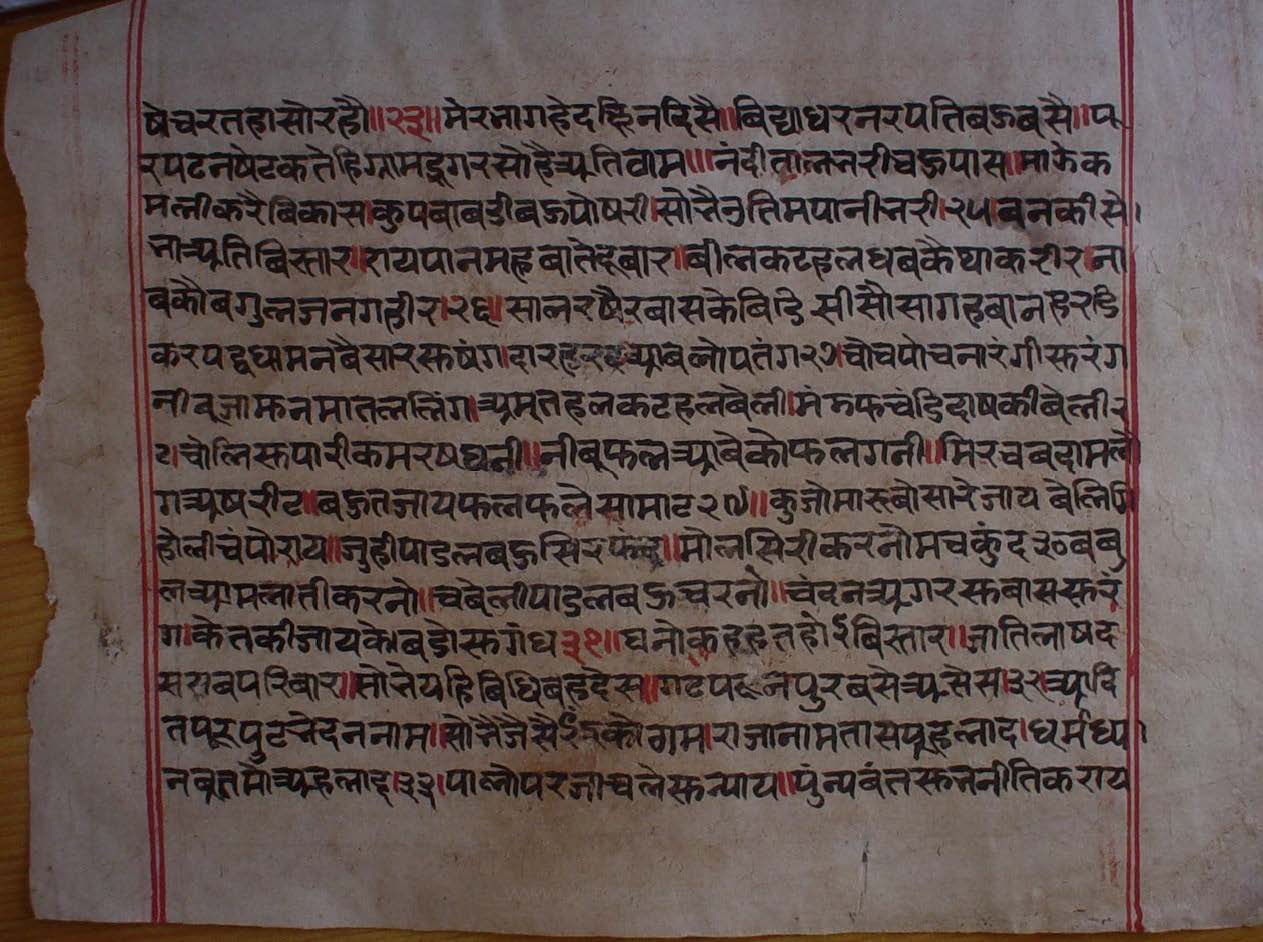 षेचरतहासोरहौ॥२३॥मेरभागहैदछिनदिसै॥बिद्याधरनरपतिबऊबसै॥प
रपटनषेटकतेहिग्रामडूगरसोहैअतिवाम॥॥नंदीतालभरीचऊपास॥माकेक
मलीकरैबिकास।कुपबाबडीबऊपोषरी।सोभैउतिमपानीभरी।२५।बनकीसो।
भाअतिबिस्तार।रायपानमहूबातेदूबार॥बीलकटहलधबकैथाकरीर।ना
बकौबगुलजनगहीर।२६॥सालरषैरबासकेबिडि सीसौसागहबानह
करपद्वधामनबैसारस्तषंग।दार बलोपतंग२७।चोचपोचनारंगीस्तरंग
नीबूजाम्कनमातललिंग।अमृतहलकटहलबेली।मंरुफचंडिदाषकीबेली२
८।चोलिस्तपारीकमरषघनी॥नीबूफलआबेकोफलगनी॥मिरचबदामलौ
गअषरीट॥बऊतजायफलफलेसामाट२९॥कुजोमारुबोसारेजाय बेलि
होलीचंपोराय॥जुहीपाडलबऊसि ॥मौलसिरीकरनौमचकुंद३०बबु
लआमलातीकरनो॥चबेलीपाडलबऊचरनो॥चंदनअगरस्तबासस्तरं
ग।केतकीजायकेबडोस्तगंध३१॥घनोकहहूतहोइबिस्तार॥जातिलाषद
ससबपरिबार॥सोभैयहिबिधिबहूदेस॥गटपटनपुरबसैअसेस।३२।आदि
तपूरपुटभेदननाम॥सोभैजैसै कोगम।राजानामतासपूहलाद।धर्मध्या।
नबूतमौअहलाद।३३।पालोपरजाचलेस्तन्याय॥पुंन्यबंतस्तभनीतिकराय